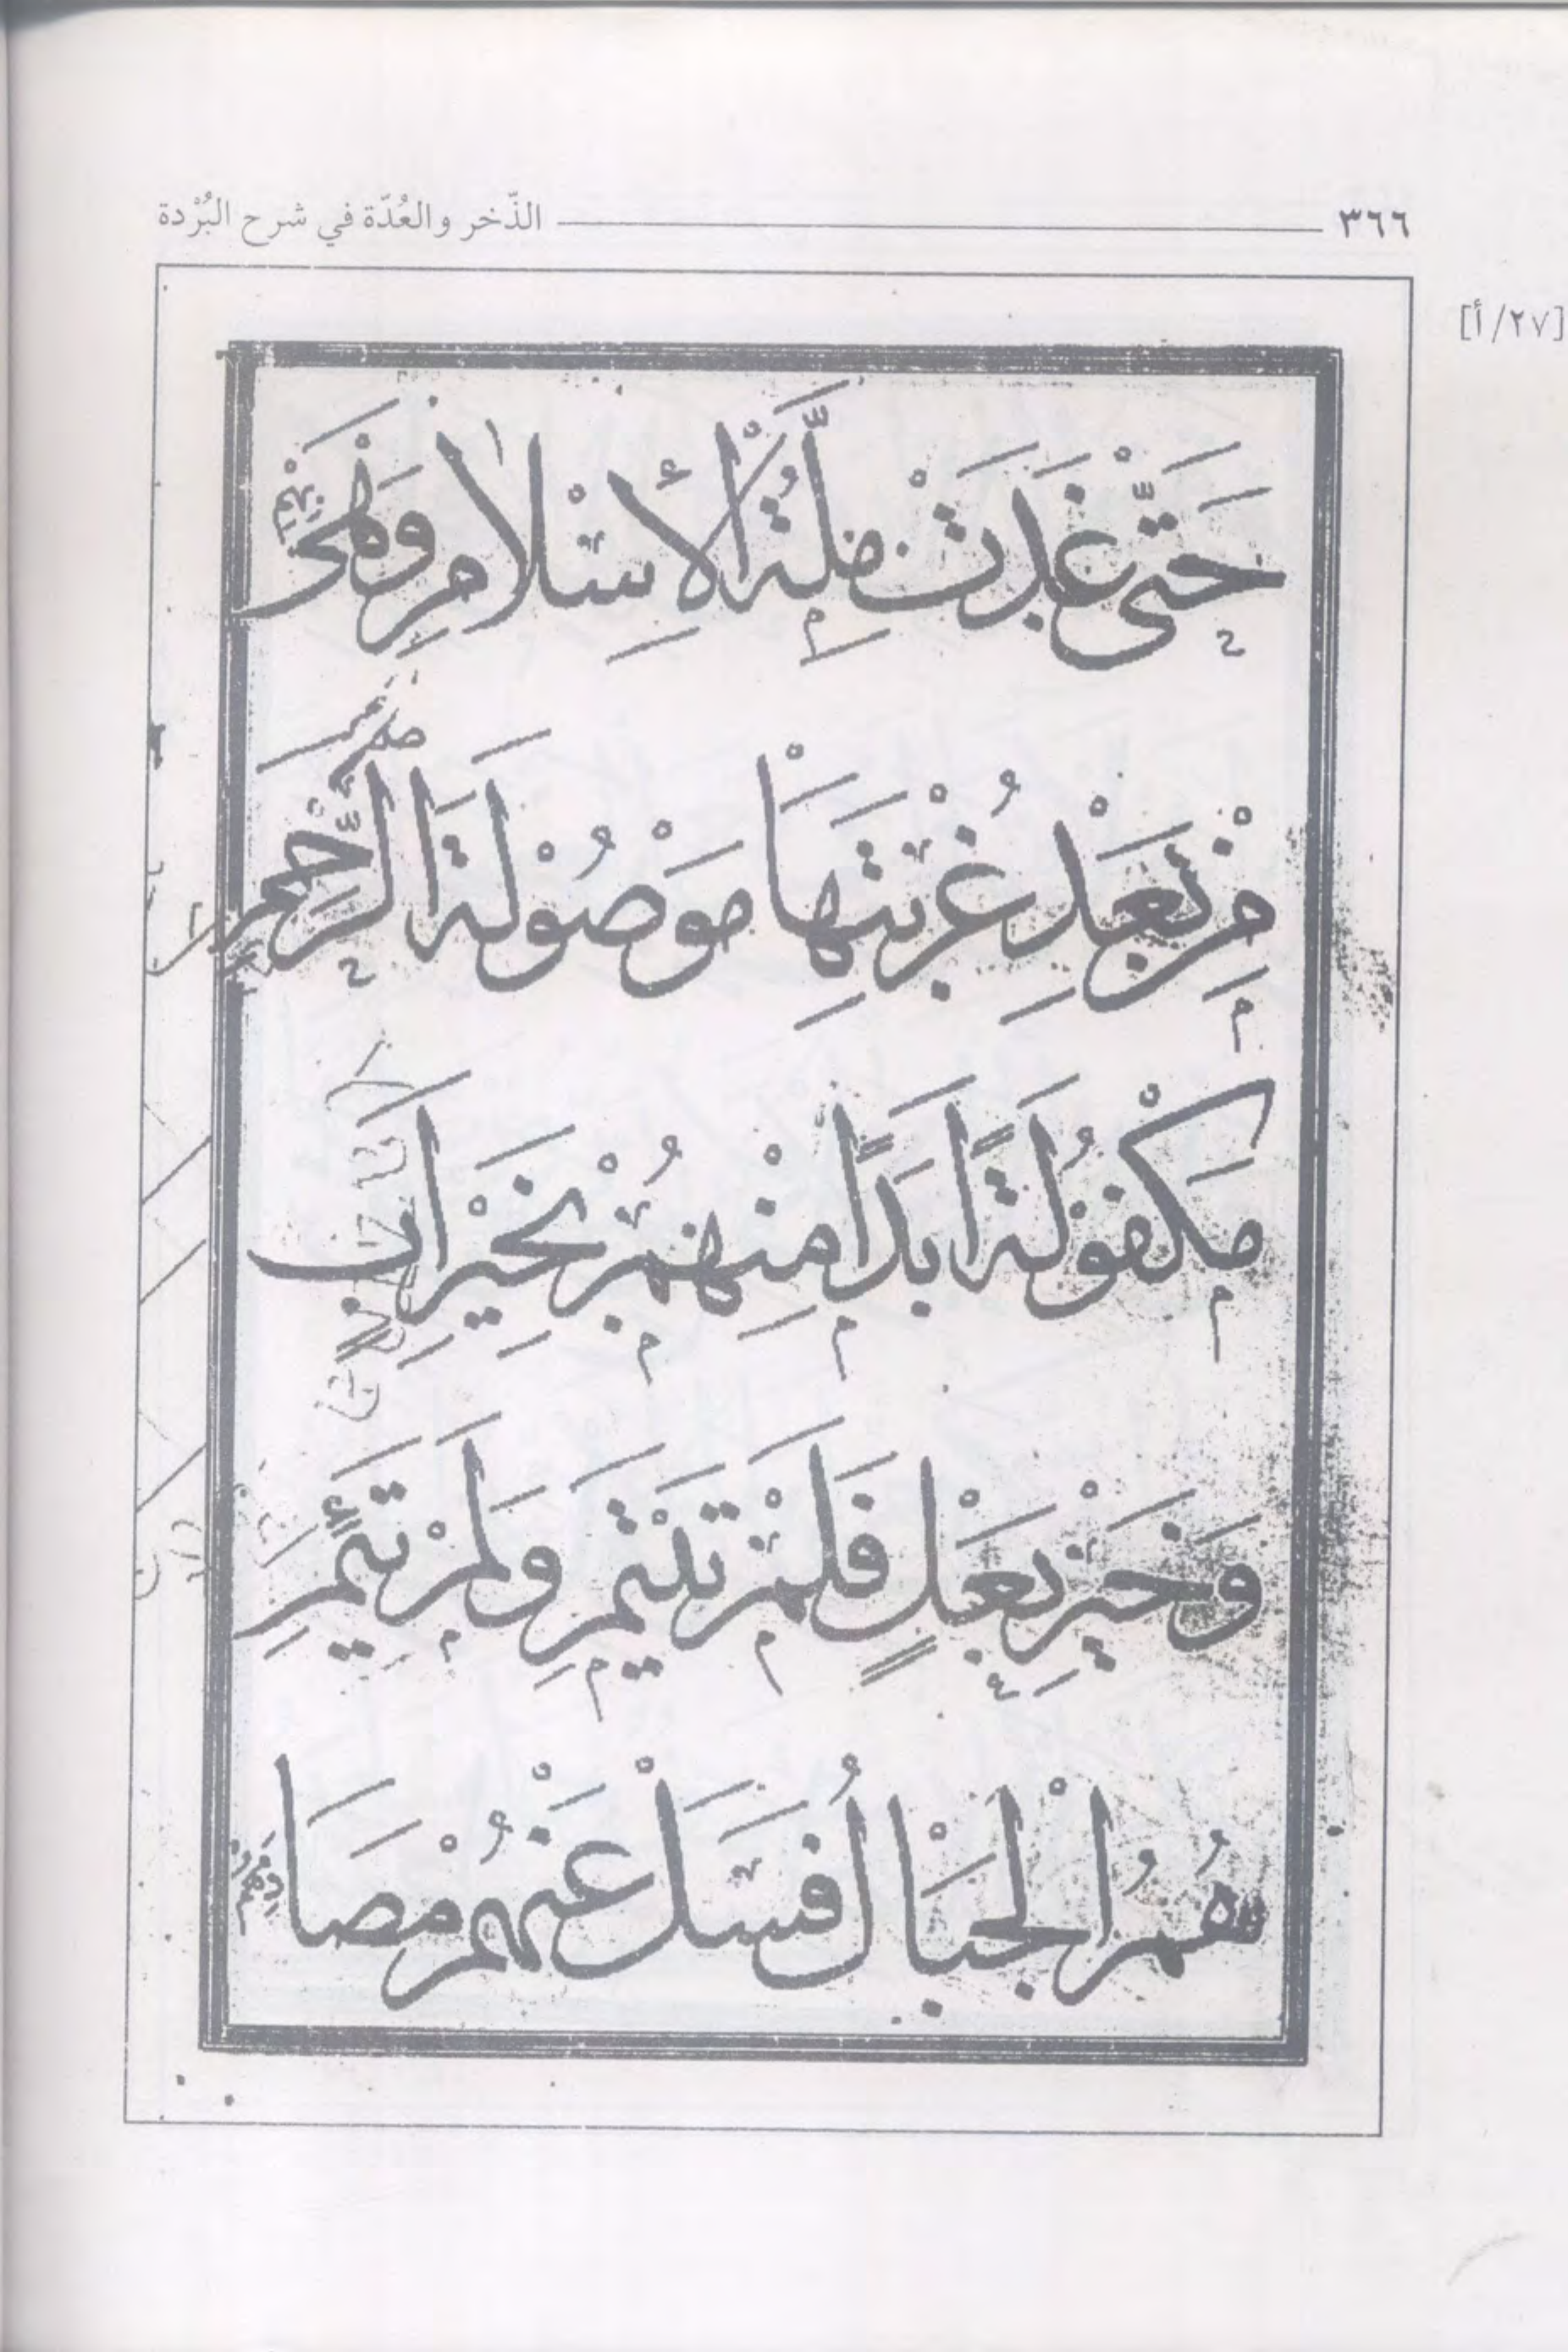 ٣٦٦ الذّخر والعُدّة في شرح البُرْدة
[٢٧/ أ]
حَتَّى غَدَتْ مِلَّةُ الْأِسْلَامِ وَهْيَ بِهِمْ
مِنْ بَعْدِ غُرْبَتِهَا مَوْصُوْلَةَ الرَّحِمِ
مَكْفُوْلَةً اَبَدًا مِنْهُمْ بِخَيْرِ اَبٍ
وَخَيْرِ بَعْلٍ فَلَمْ تَيْتَمْ وَلَمْ تَئِمِ
هُمُ الْجِبَالُ فَسَلْ عَنْهُمْ مُصَادِمَهُمْ